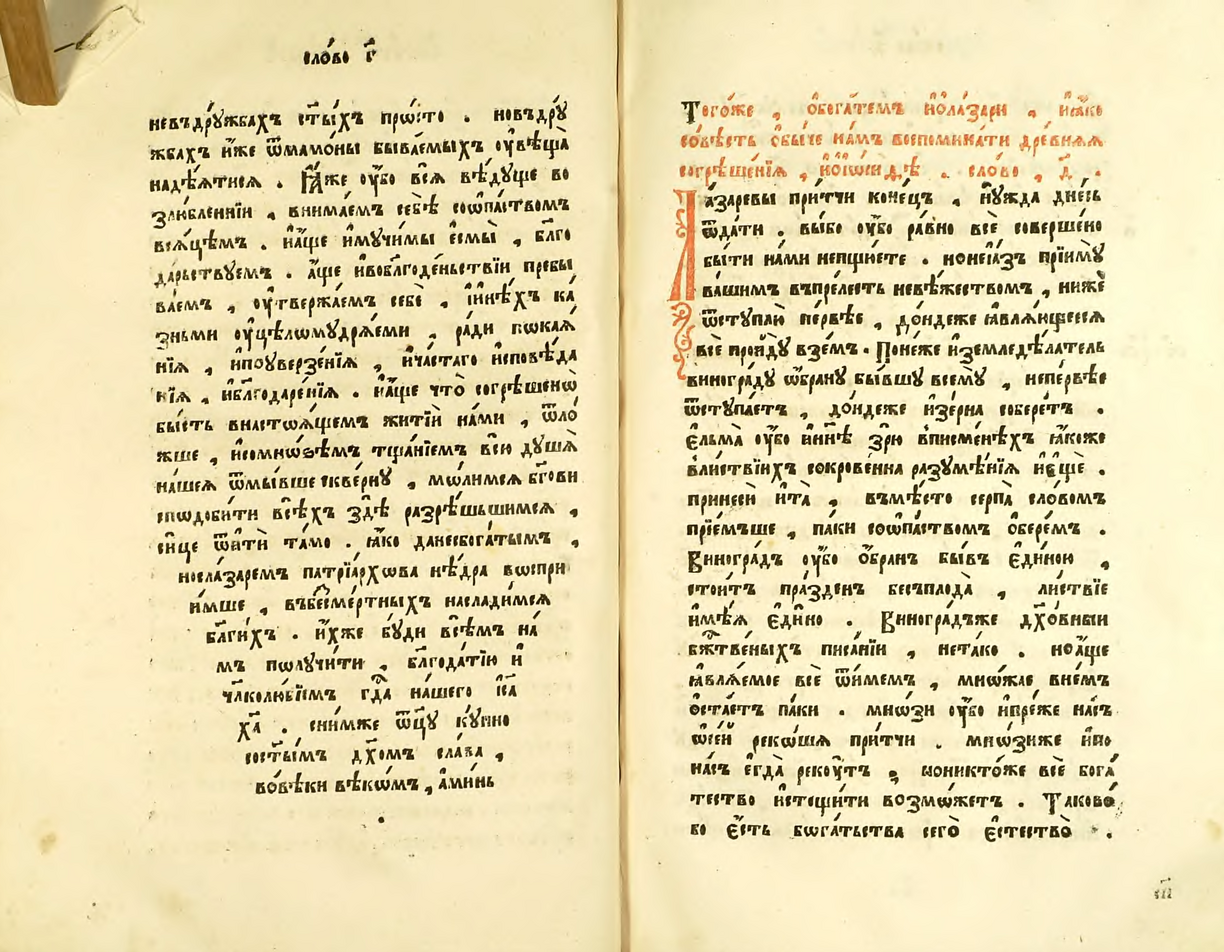 сло́во г҃
невъдрꙋ́жбахъ ст҃ы́хъ прѡ́сто . новъдрꙋ́
жбахъ и҆́же ѿмамо́ны быва́емыхъ оу҆вѣща̀
надѣ́ятися . Ꙗ҆̀же оу҆́бо всѧ̀ вѣ́дꙋще во
злю́бленнїи , внима́емъ себѣ̀ соѡпа́ствомъ
вся́цѣмъ . и҆а҆́ще и҆мꙋчи́мы е҆смы̀ , бл҃го
да́рьствꙋемъ . а҆́ще и҆воблагоде́ньствїи пребы
ва́емъ , оу҆твержа́емъ себѐ , і҆и҆нѣ́хъ ка́
зньми оу҆цѣлѡмꙋдря́еми , ра́ди пѡкаѧ́
нїѧ , и҆поꙋверзе́нїѧ , и҆ча́стаго и҆сповѣ́да
нїѧ , и҆бл҃года́ренїѧ . и҆а҆́ще что̀ согрѣшенѡ̀
бы́сть внастѡѧ́щемъ житїѝ на́ми , ѿло́
жше , и҆сомно́зѣмъ тща́нїемъ все́ю дꙋша̀
на́шеѧ ѿмы́вше скве́рнꙋ , мѡ́лимсѧ бг҃ови
спѡдо́бити всѣ́хъ здѣ̀ разрѣ́шьшимсѧ ,
си́це ѿитѝ та́мо . ꙗ҆́ко данесбога́тымъ ,
носла́заремъ патрїа́рхѡва нѣ́дра вѡспри
и́мше , въбесме́ртныхъ наслади́мсѧ
бл҃ги́хъ . и҆́хже бꙋ́ди всѣ́мъ на́
мъ пѡлꙋчи́ти , бл҃года́тїю и҆
чл҃колю́бїемъ гд҃а на́шего і҆са
ха̀ . сни́мже ѿц҃ꙋ кꙋ́пно
состы́мъ дх҃омъ сла́ва ,
вовѣ́ки вѣкѡ́мъ , а҆ми́нь
Того́же , о҆бога́темъ и҆ѻла́зари , и҆ꙗ҆́ко
со́вѣсть о҆бы́че на́мъ воспомина́ти дре́внѧѧ
согрѣше́нїѧ , и҆ѻі҆ѡ́сифѣ . сло́во , д҃ .
Ла́заревы при́тчи коне́цъ , нꙋ́жда дне́сь
ѿда́ти . вы́бо оу҆́бо ра́вно всѐ соверше́но
бы́ти на́ми непщꙋ́ете . ноне́і҆азъ прїимꙋ̀
ва́шимъ въпре́лесть невѣ́жествомъ , нижѐ
ѿстꙋпа́ю пе́рвѣе , до́ндеже ꙗ҆влѧ́ющеесѧ
всѐ про́йдꙋ взе́мъ . Поне́же и҆земледѣ́латель
виногра́дꙋ ѡ҆́бранꙋ бы́вшꙋ всемꙋ̀ , непе́рвѣе
ѿстꙋпа́етъ , до́ндеже и҆зе́рна собере́тъ .
Е҆льма̀ оу҆́бо и҆нн҃ѣ зрю̀ вписменѣ́хъ ꙗ҆́коже
вли́ствїихъ сокрове́нна разꙋмѣ́нїѧ и҆е҆́ще .
принесѝ и҆та̀ , въмѣ́сто серпа̀ сло́вомъ
прїе́мъше , па́ки соѡпа́ствомъ о҆бере́мъ .
Виногра́дъ оу҆́бо о҆́бранъ бы́въ е҆ди́ною ,
стои́тъ пра́зденъ бесъплода̀ , ли́ствїе
и҆мѣ́ѧ е҆ди́но . Виногра́дъже дх҃о́вныи
бж҃твеныхъ писа́нїи , нета́ко . ноа҆́ще
ꙗ҆влѧ́емое всѐ ѿи́мемъ , мнѡ́жае вне́мъ
ѡ҆ста́етъ па́ки . мнѡ́зи оу҆́бо и҆пре́же на́съ
ѡ҆се́й реко́шѧ при́тчи . мнѡ́зиже и҆по
на́съ е҆гда̀ рекꙋ́тъ , нониктѻ́же всѐ бога́
тество и҆стощи́ти возмѡ́жетъ . Таково̀
бо є҆́сть бѡга́тьства сего̀ є҆стество̀ .